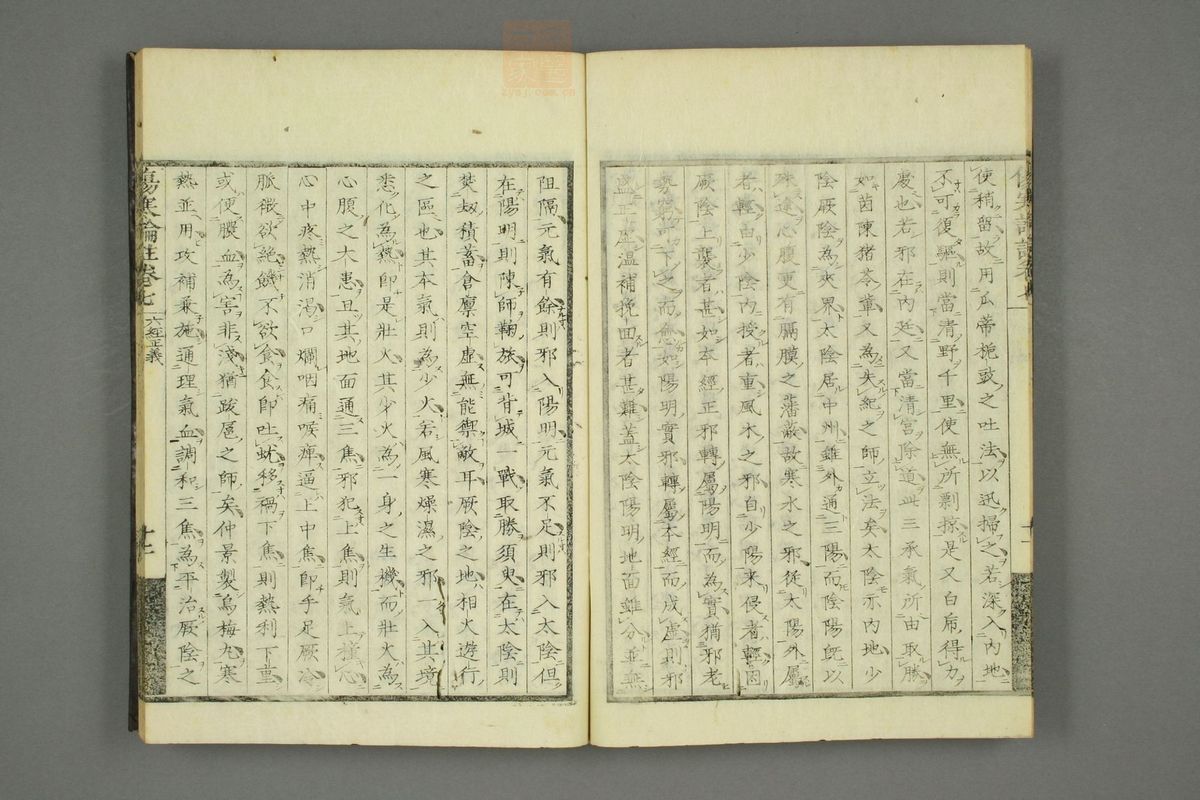 使稍留故用瓜蒂梔豉之吐法以迅掃之若深入內地
不可復驅則當清野千里使無所剽掠是又白虎得力
處也若邪在內廷又當清宮除道此三承氣所由取勝
如茵陳猪苓輩又為失紀之師立法矣太陰亦內地少
陰厥陰為夾界太陰居中州雖外通三陽而陰陽既以
殊途心腹更有膈膜之藩蔽故寒水之邪從太陽外屬
者輕由少陰內授者重風木之邪自少陽来侵者輕因
厥陰上襲者甚如本經正邪轉屬陽明而為實猶邪老
勢窮可下之而愈如陽明實邪轉屬本經而成虛則邪
盛正虛温補挽回者甚難蓋太陰陽明地面雖分並無
阻隔元氣有餘則邪入陽明元氣不足則邪入太陰但
在陽明則陳師鞠旅可背城一戰取勝須臾在太陰則
焚刼積蓄倉廩空虛無能禦敵耳厥陰之地相火遊行
之區也其本氣則為少火若風寒燥濕之邪一入其境
悉化為熱即是壯火其少火為一身之生機而壯火為
心腹之大患且其地面通三焦邪犯上焦則氣上撞心
心中疼熱消渴口爛咽痛喉痺逼上中焦即手足厥冷
脈微欲絶饑不欲食食即吐蚘移禍下焦則熱利下重
或便膿血為害非淺猶跋扈之師矣仲景製烏梅丸寒
熱並用攻補兼施通理氣血調和三焦為平治厥陰之
傷寒論註卷七
六經正義
十二
zysj.com.cn